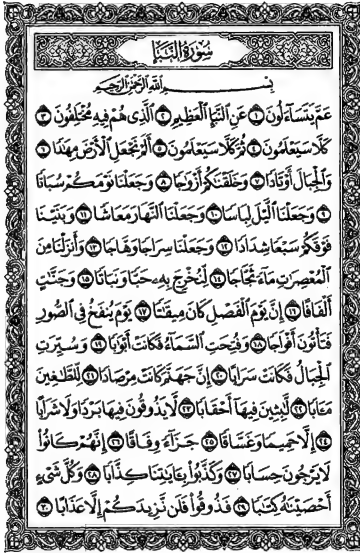 سُورَةُ النَّبَإِ
بِسْمِ اللَّهِ الرَّحْمَٰنِ الرَّحِيمِ
عَمَّ يَتَسَاءَلُونَ ١ عَنِ النَّبَإِ الْعَظِيمِ ٢ الَّذِي هُمْ فِيهِ مُخْتَلِفُونَ ٣
كَلَّا سَيَعْلَمُونَ ٤ ثُمَّ كَلَّا سَيَعْلَمُونَ ٥ أَلَمْ نَجْعَلِ الْأَرْضَ مِهَٰدًا ٦
وَالْجِبَالَ أَوْتَادًا ٧ وَخَلَقْنَٰكُمْ أَزْوَٰجًا ٨ وَجَعَلْنَا نَوْمَكُمْ سُبَاتًا
٩ وَجَعَلْنَا الَّيْلَ لِبَاسًا ١٠ وَجَعَلْنَا النَّهَارَ مَعَاشًا ١١ وَبَنَيْنَا
فَوْقَكُمْ سَبْعًا شِدَادًا ١٢ وَجَعَلْنَا سِرَاجًا وَهَّاجًا ١٣ وَأَنزَلْنَا مِنَ
الْمُعْصِرَٰتِ مَاءً ثَجَّاجًا ١٤ لِّنُخْرِجَ بِهِ حَبًّا وَنَبَاتًا ١٥ وَجَنَّٰتٍ
أَلْفَافًا ١٦ إِنَّ يَوْمَ الْفَصْلِ كَانَ مِيقَٰتًا ١٧ يَوْمَ يُنفَخُ فِي الصُّورِ
فَتَأْتُونَ أَفْوَاجًا ١٨ وَفُتِحَتِ السَّمَاءُ فَكَانَتْ أَبْوَٰبًا ١٩ وَسُيِّرَتِ
الْجِبَالُ فَكَانَتْ سَرَابًا ٢٠ إِنَّ جَهَنَّمَ كَانَتْ مِرْصَادًا ٢١ لِّلطَّٰغِينَ
مَـَٔابًا ٢٢ لَّٰبِثِينَ فِيهَا أَحْقَابًا ٢٣ لَّا يَذُوقُونَ فِيهَا بَرْدًا وَلَا شَرَابًا
٢٤ إِلَّا حَمِيمًا وَغَسَّاقًا ٢٥ جَزَاءً وِفَاقًا ٢٦ إِنَّهُمْ كَانُوا
لَا يَرْجُونَ حِسَابًا ٢٧ وَكَذَّبُوا بِـَٔايَٰتِنَا كِذَّابًا ٢٨ وَكُلَّ شَيْءٍ
أَحْصَيْنَٰهُ كِتَٰبًا ٢٩ فَذُوقُوا فَلَن نَّزِيدَكُمْ إِلَّا عَذَابًا ٣٠